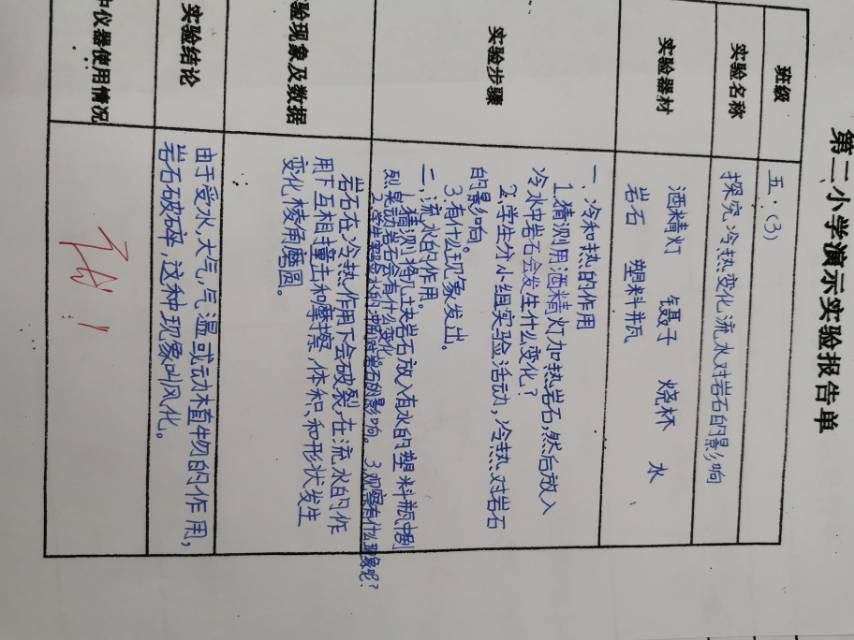 第二小学演示实验报告单
班级
五.(3)
实验名称
探究冷热变化流水对岩石的影响
实验器材
酒精灯 镊子 烧杯 水
岩石 塑料瓶
实验步骤
一、冷和热的作用
1.猜测用酒精灯加热岩石,然后放入
冷水中岩石会发生什么变化?
2.学生分小组实验活动,冷热对岩石
的影响。
3.有什么现象发出。
二、流水的作用。
1.猜测将几块岩石放入有水的塑料瓶中剧
烈晃动岩石会有什么变化
3.观察有什么现象呢?
验现象及数据
岩石在冷热作用下会破裂,在流水的作
用下互相撞击和摩擦,体积、和形状发生
变化棱角磨圆。
实验结论
由于受水,大气,气温或动植物的作用,
岩石破碎,这种现象叫风化。
中仪器使用情况